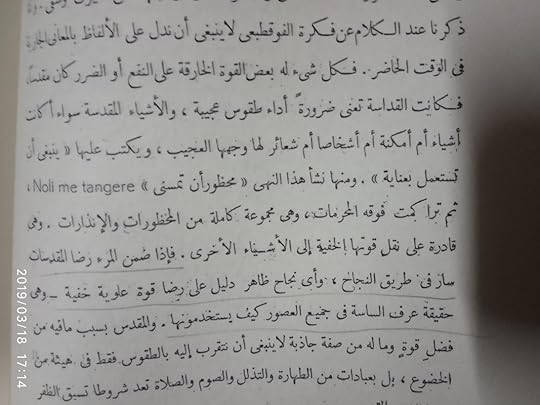 ذكرنا عند الكلام عن فكرة الفوقطبعى لاينبغى أن ندل على الألفاظ بالمعانى الجارية
فى الوقت الحاضر. فكل شىء له بعض القوة الخارقة على النفع أو الضرر كان مقدسًا،
فكانت القداسة تعنى ضرورةً أداء طقوس عجيبة، والأشياء المقدسة سواء أكانت
أشياء أم أمكنة أم أشخاصا أم شعائر لها وجهها العجيب، ويكتب عليها « ينبغى أن
تستعمل بعناية ». ومنها نشأ هذا النهى « محظور أن تمسنى » Noli me tangere،
ثم تراكمت فوقه المحرمات، وهى مجموعة كاملة من المحظورات والإنذارات. وهى
قادرة على نقل قوتها الخفية إلى الأشياء الأخرى. فإذا ضمن المرء رضا المقدسات
سار فى طريق النجاح، وأى نجاح ظاهر دليل على رضا قوة علوية خفية – وهى
حقيقة عرف الساسة فى جميع العصور كيف يستخدمونها. والمقدس بسبب مافيه من
فضل قوةٍ وماله من صفة جاذبة لاينبغى أن نتقرب إليه بالطقوس فقط فى هيئة من
الخضوع، بل بعبادات من الطهارة والتذلل والصوم والصلاة تعد شروطا تسبق الظفر
2019/03/18 17:14